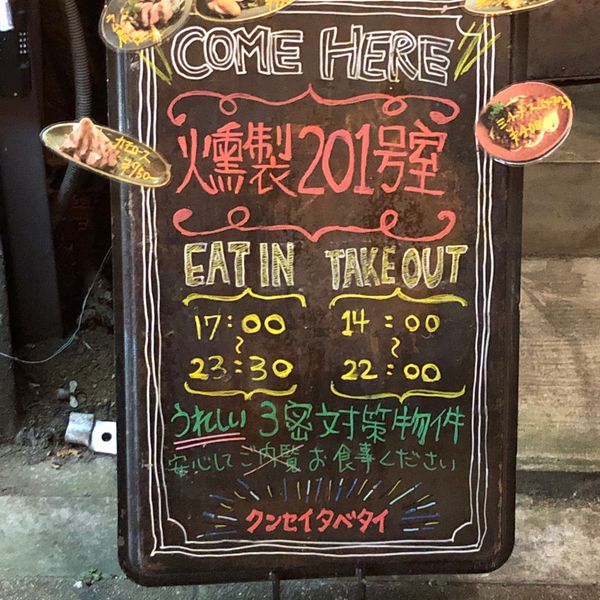 COME HERE
燻製201号室
カモロース
¥950
EAT IN TAKE OUT
17:00 14:00
~ ~
23:30 22:00
うれしい 3密対策物件
安心してご内覧お食事ください
クンセイタベタイ